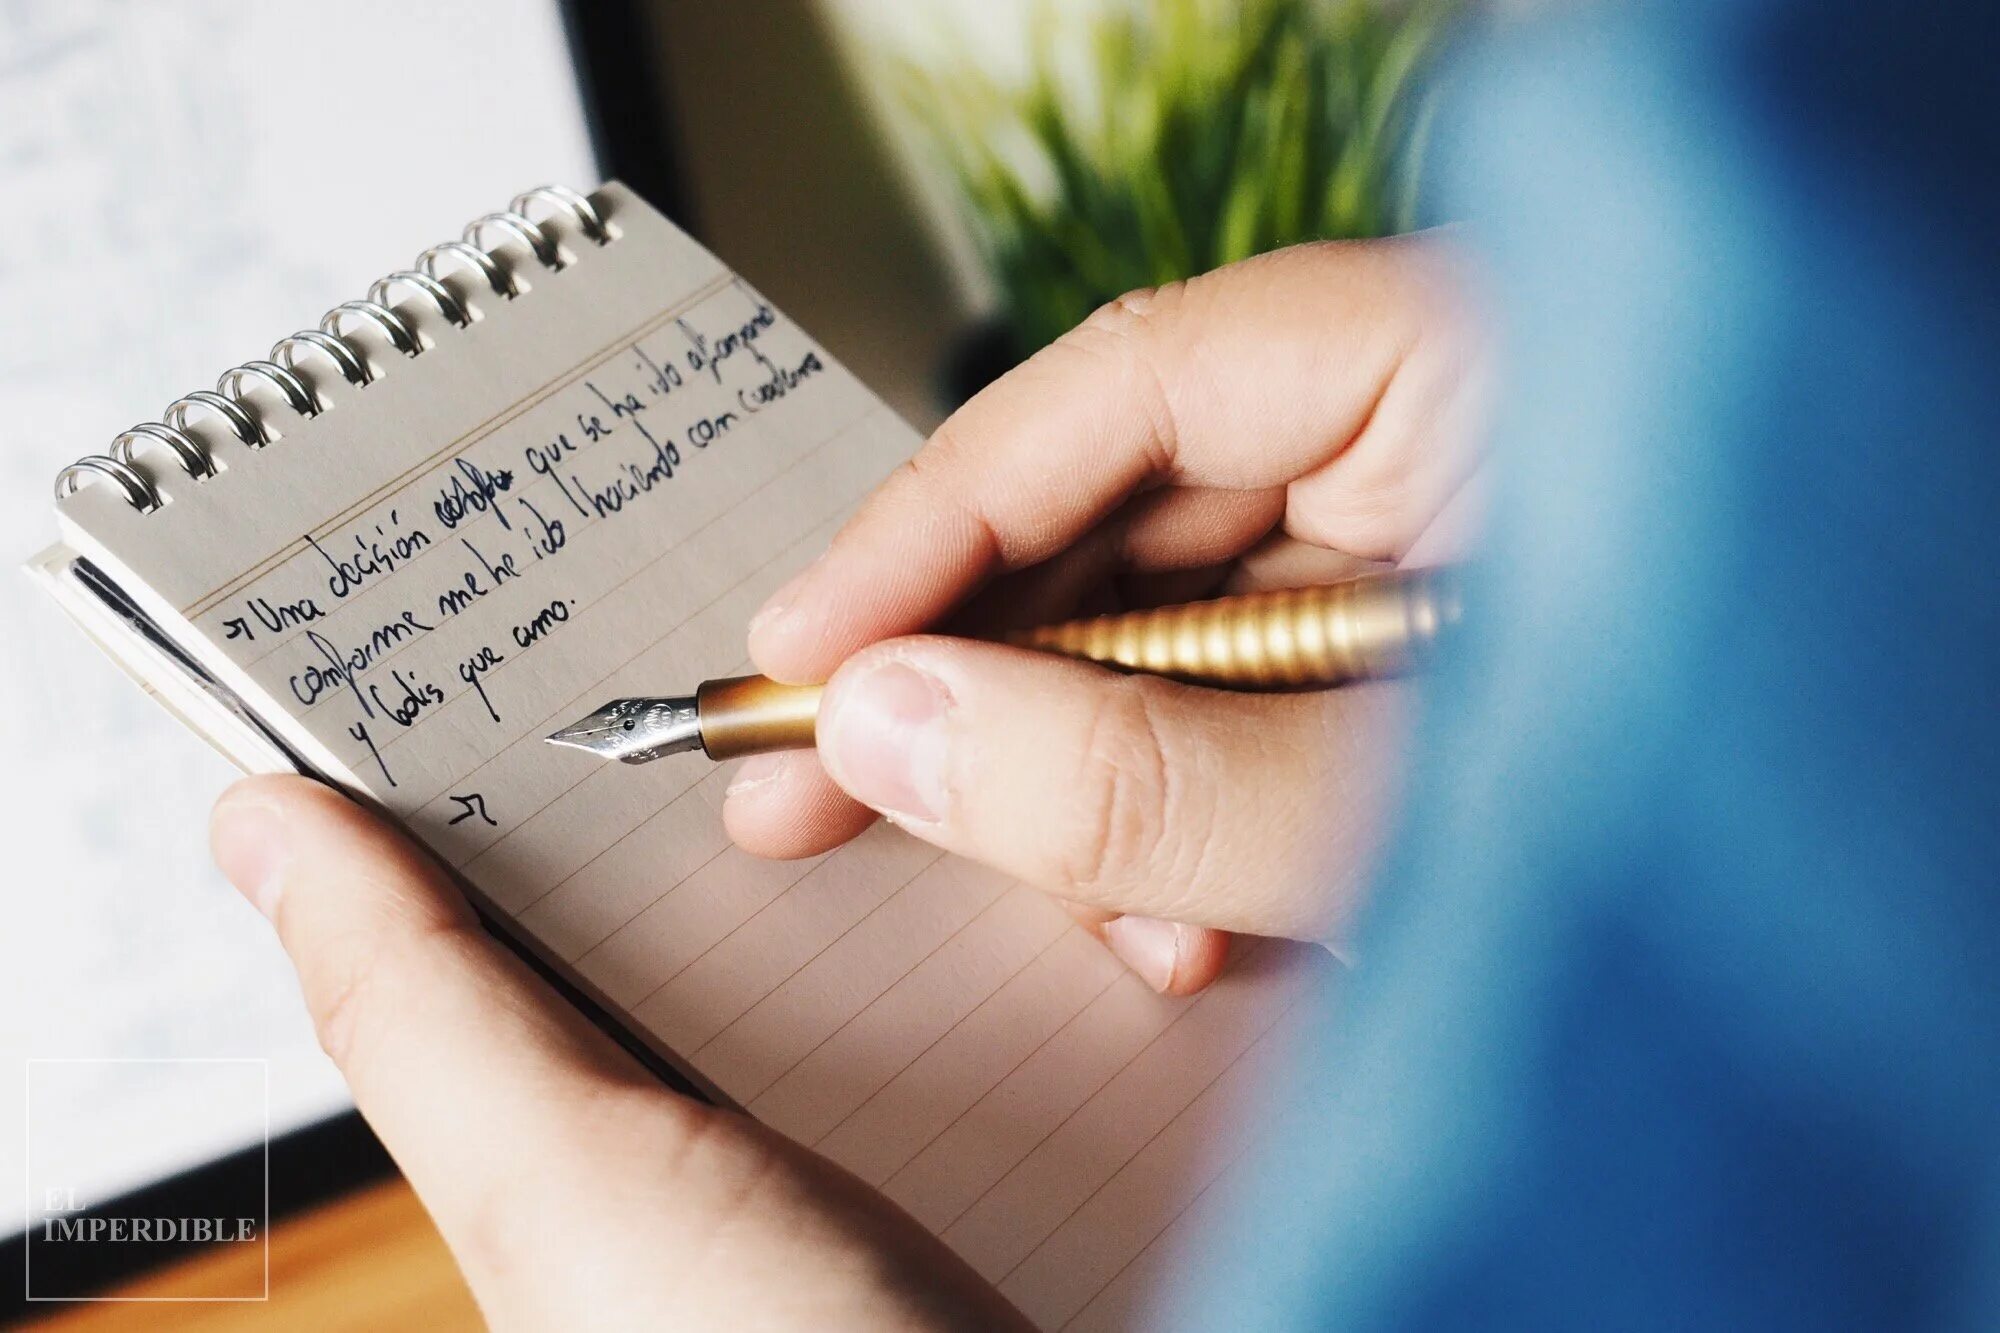 → Una decisión que se ha ido afianzando
conforme me he ido haciendo con cuadernos
y bolis que amo.
→
EL
IMPERDIBLE